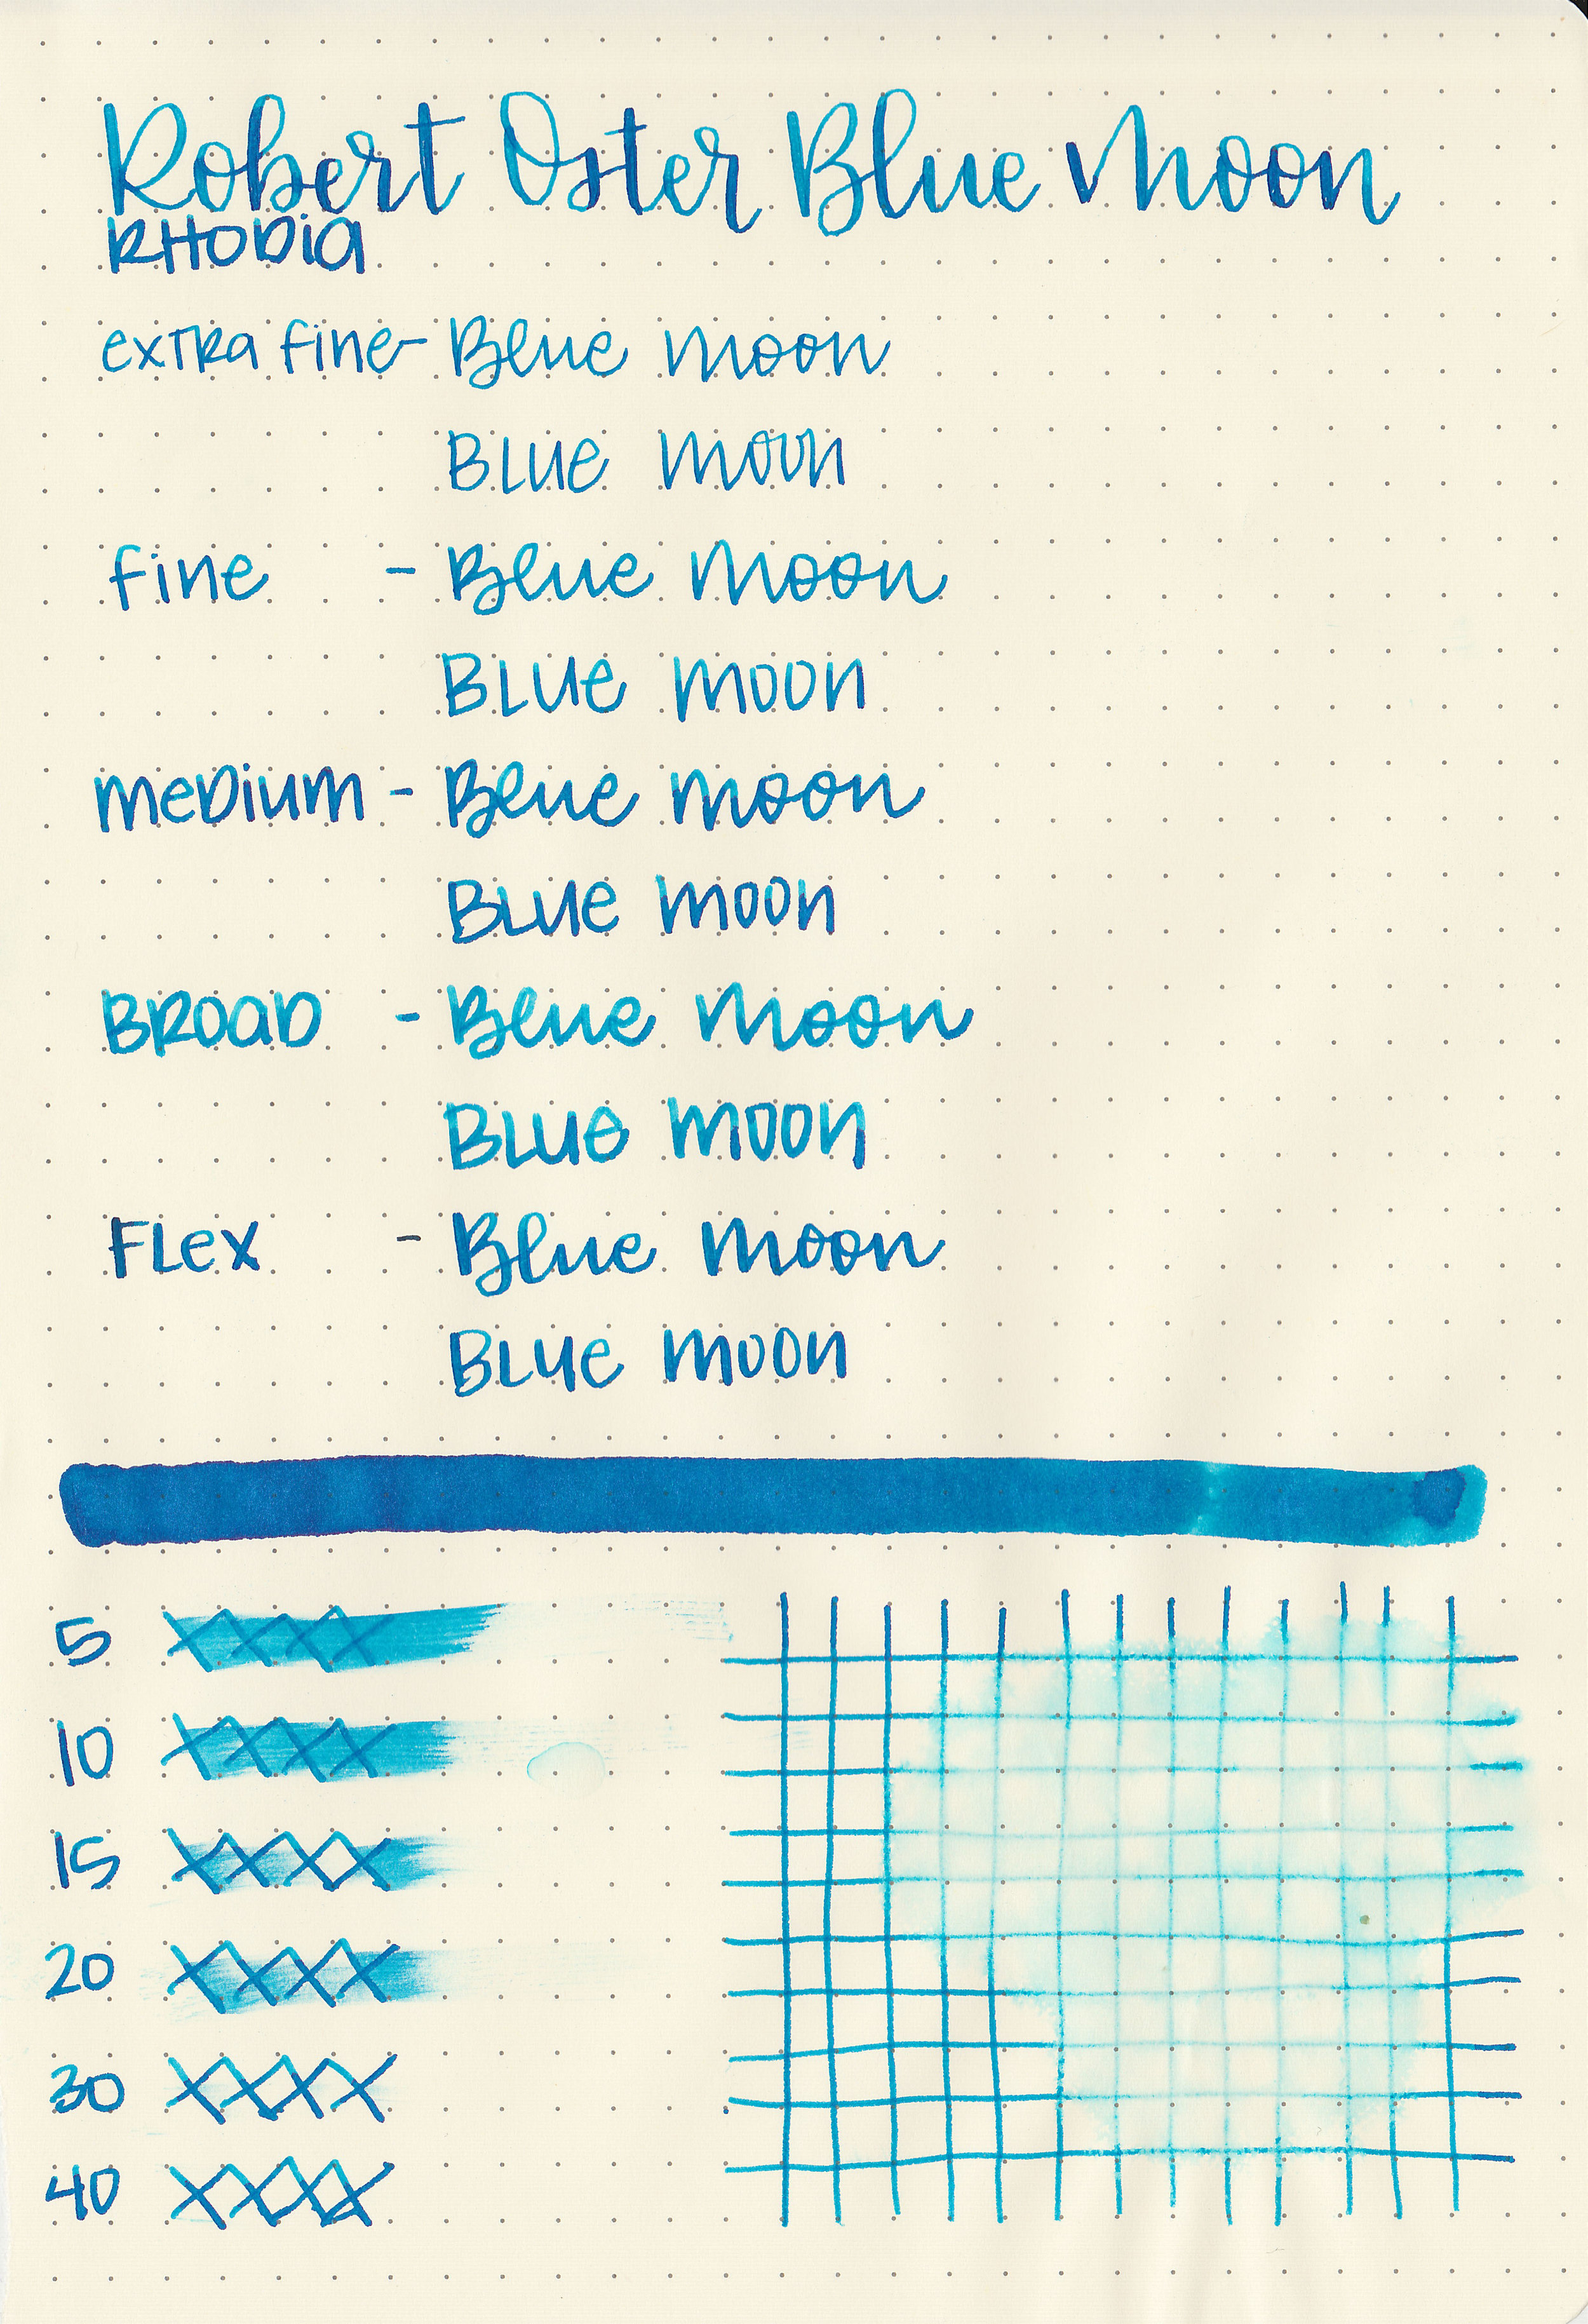 Robert Oster Blue Moon
RHODia
exTRa fine- Blue moon
BLUe moon
fine - Blue Moon
BLUe moon
meDium - Blue moon
BLUe moon
BROaD - Blue Moon
BLUe moon
FLex - Blue Moon
BLUe moon
5 XXXX
10 XXXX
15 XXXX
20 XXXX
30 XXXX
40 XXXX